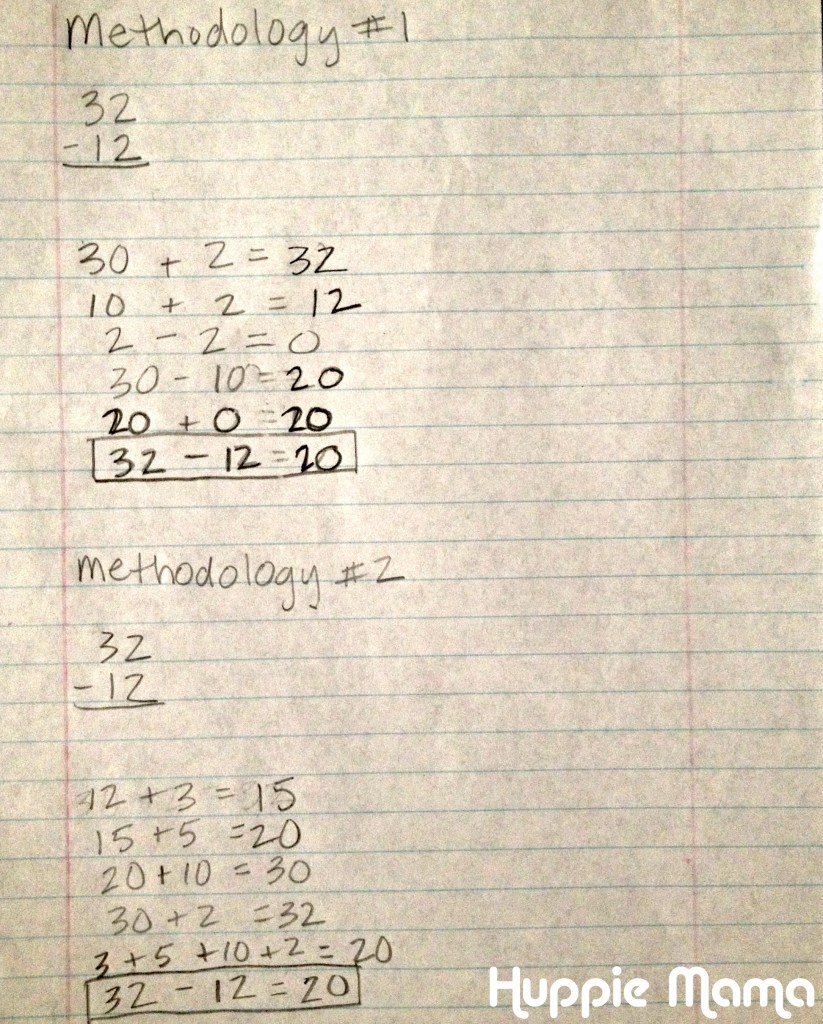 Methodology #1
32
-12
30 + 2 = 32
10 + 2 = 12
2 - 2 = 0
30 - 10 = 20
20 + 0 = 20
32 - 12 = 20
methodology #2
32
-12
12 + 3 = 15
15 + 5 = 20
20 + 10 = 30
30 + 2 = 32
3 + 5 + 10 + 2 = 20
32 - 12 = 20
Huppie Mama